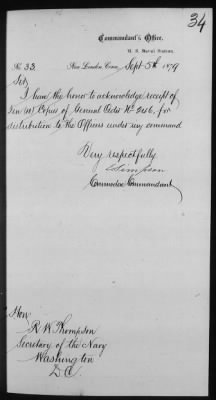 34
Commandant's Office,
U. S. Naval Station,
No. 33. New London, Conn., Sept 5th 1879
Sir,
I have the honor to acknowledge receipt of
Ten (10) Copies of General Order No. 246, for
distribution to the Officers under my command.
Very respectfully
Simpson
Commodore Commandant
Hon
R. W. Thompson
Secretary of the Navy
Washington
D.C.